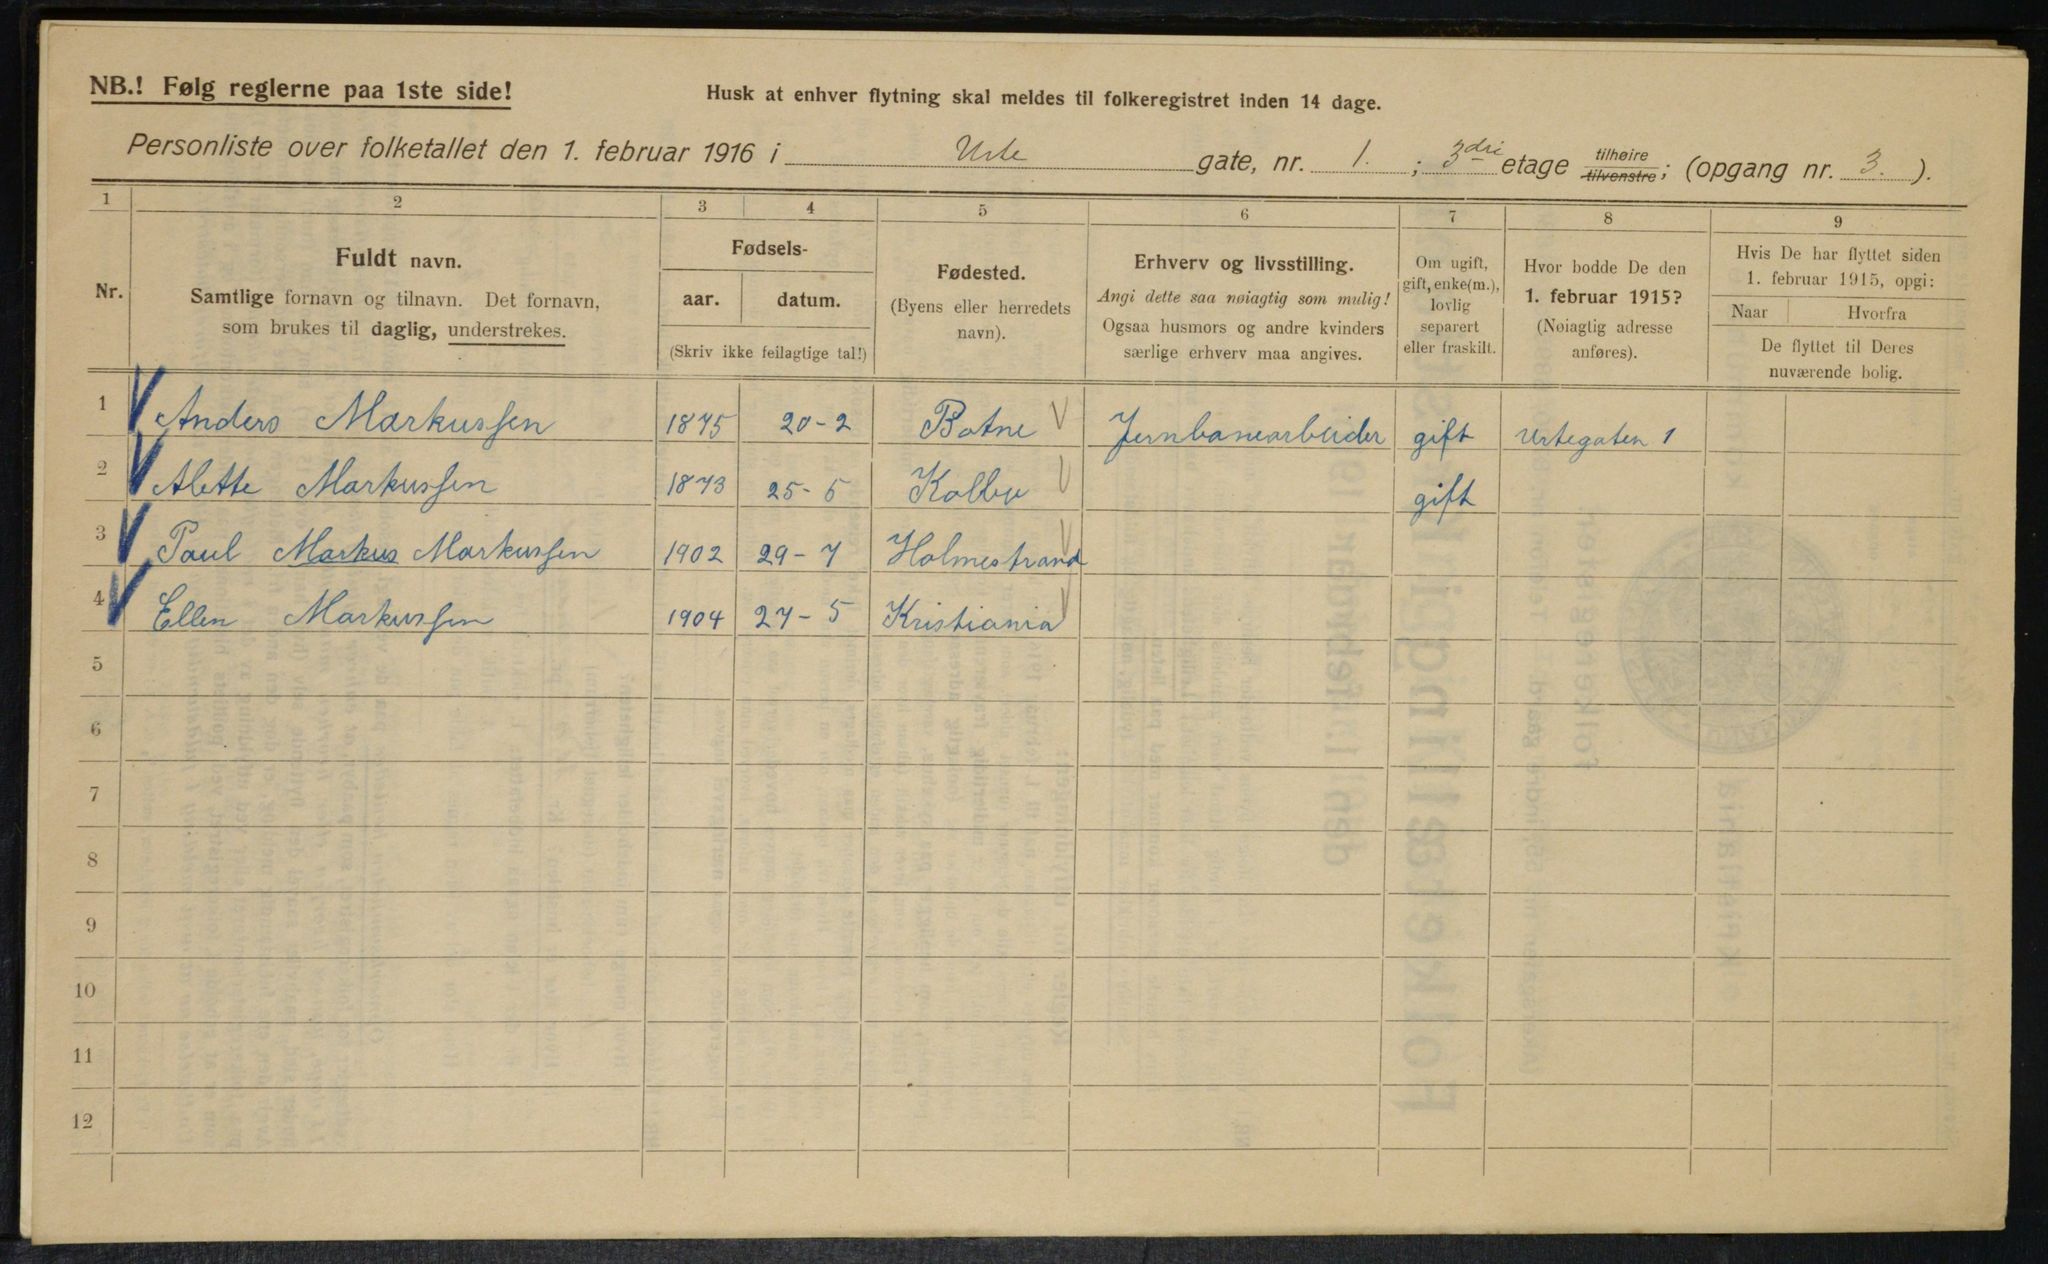 NB.! Følg reglerne paa 1ste side!
Husk at enhver flytning skal meldes til folkeregistret inden 14 dage.
Personliste over folketallet den 1. februar 1916 i Urte gate, nr. 1. ; 3dri etage tilhøire tilvenstre; (opgang nr. 3. ).
1 2 3 4 5 6 7 8 9
Nr.
Fuldt navn.
Samtlige fornavn og tilnavn. Det fornavn,
som brukes til daglig, understrekes.
Fødsels-
aar. datum.
(Skriv ikke feilagtige tal!)
Fødested.
(Byens eller herredets
navn).
Erhverv og livsstilling.
Angi dette saa nøiagtig som mulig!
Ogsaa husmors og andre kvinders
særlige erhverv maa angives.
Om ugift,
gift, enke(m.),
lovlig
separert
eller fraskilt.
Hvor bodde De den
1. februar 1915?
(Nøiagtig adresse
anføres).
Hvis De har flyttet siden
1. februar 1915, opgi:
Naar Hvorfra
De flyttet til Deres
nuværende bolig.
1 Anders Markussen 1875 20-2 Botne Jernbanearbeider gift Urtegaten 1
2 Alette Markussen 1873 25-5 Kolbu gift
3 Paul Markus Markussen 1902 29-7 Holmestrand
4 Ellen Markussen 1904 27-5 Kristiania
5
6
7
8
9
10
11
12